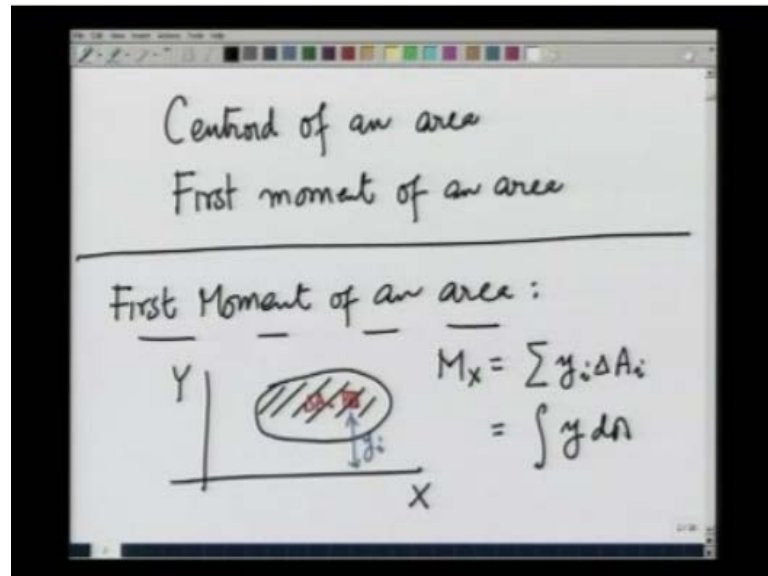 Centroid of an area
First moment of an area
First Moment of an area :
Y
M_x = ∑ y_i ΔA_i
= ∫ y dA
y_i
X